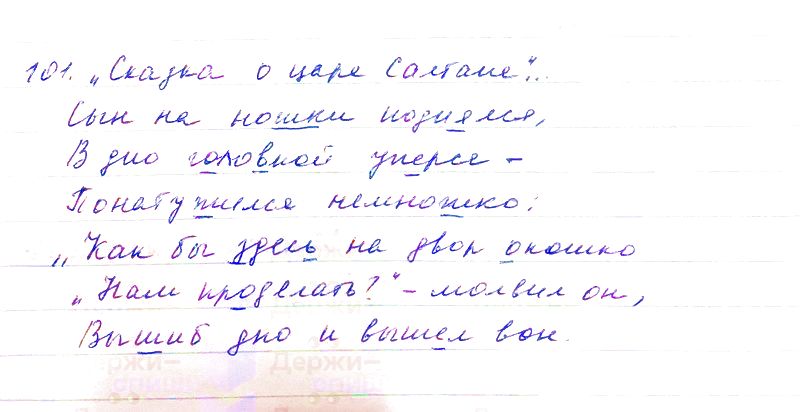 101. „Сказка о царе Салтане"...
Сын на ножки поднялся,
В дно головкой уперся –
Понатужился немножко:
„Как бы здесь на двор окошко
„Нам проделать?" – молвил он,
Вышиб дно и вышел вон.
Держи– Держи–